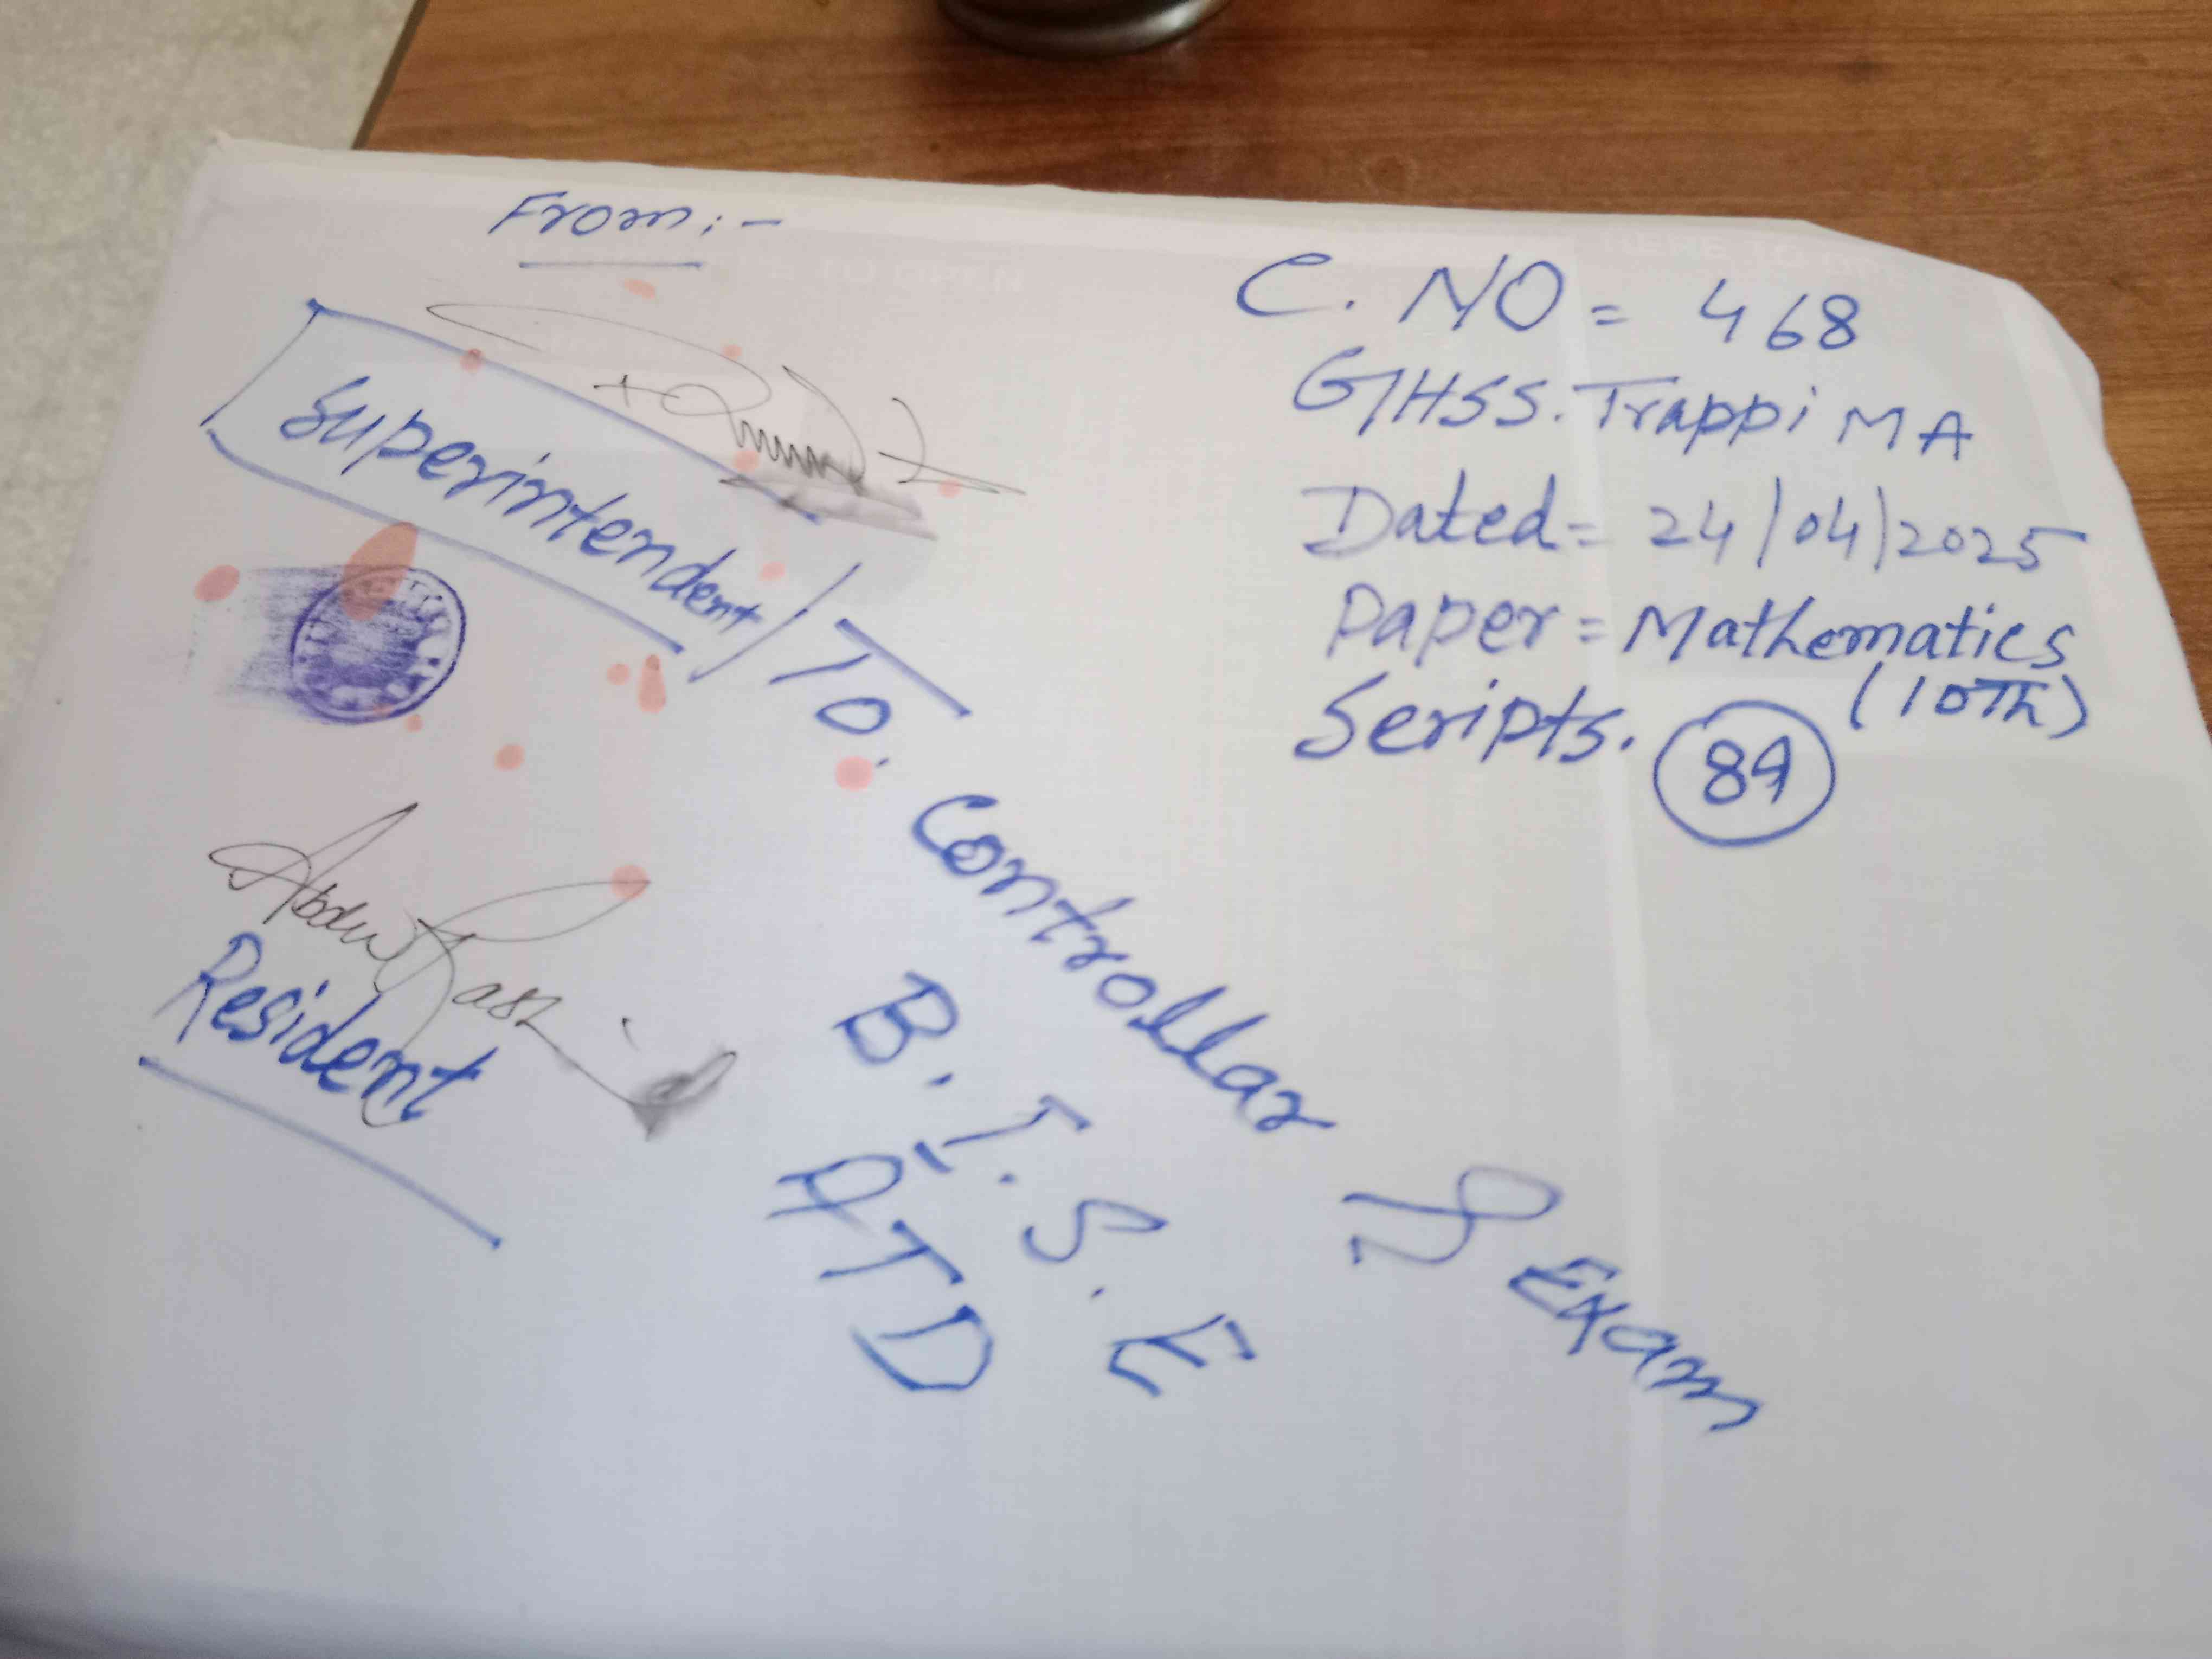 From:-
Superintendent/
Resident
To.
Controllar of Exam
B.I.S.E
ATD
C. NO = 468
G/HSS. Trappi MA
Dated = 24/04/2025
Paper = Mathematics
(10Th)
Scripts. 89